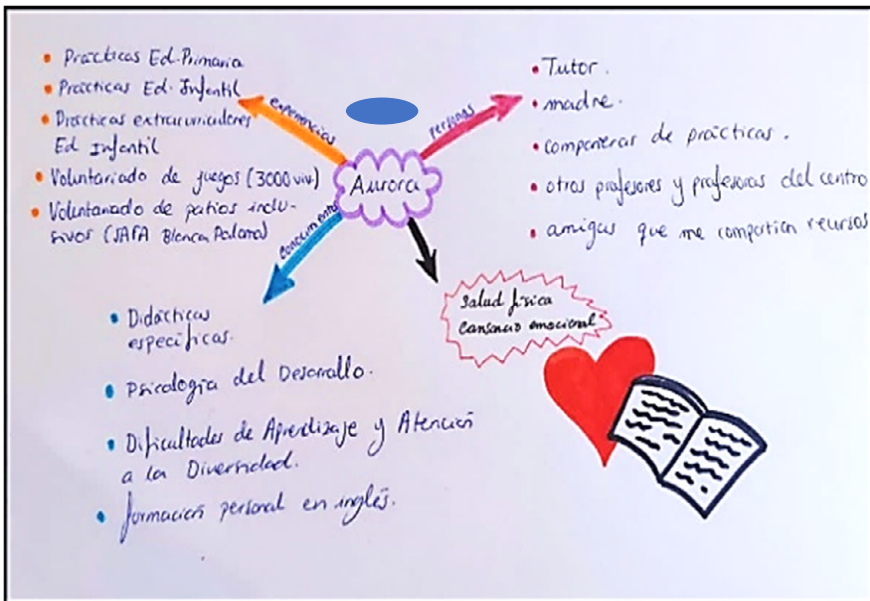 Prácticas Ed. Primaria
Prácticas Ed. Infantil
Prácticas extracurriculares
Ed Infantil
Voluntariado de juegos (3000 viv)
Voluntariado de patios inclu-
sivos (SAFA Blanca Paloma)
experiencias
personas
Aurora
conocimientos
Tutor.
madre.
compañeras de prácticas.
otros profesores y profesoras del centro
amigas que me compartían recursos
Salud física
Cansancio emocional
Didácticas
específicas.
Psicología del Desarrollo.
Dificultades de Aprendizaje y Atención
a la Diversidad.
formación personal en inglés.